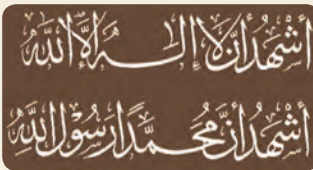 أَشْهَدُ أَنْ لَا إِلٰهَ إِلَّا اللّٰه
أَشْهَدُ أَنَّ مُحَمَّدًا رَسُولُ اللّٰهِ